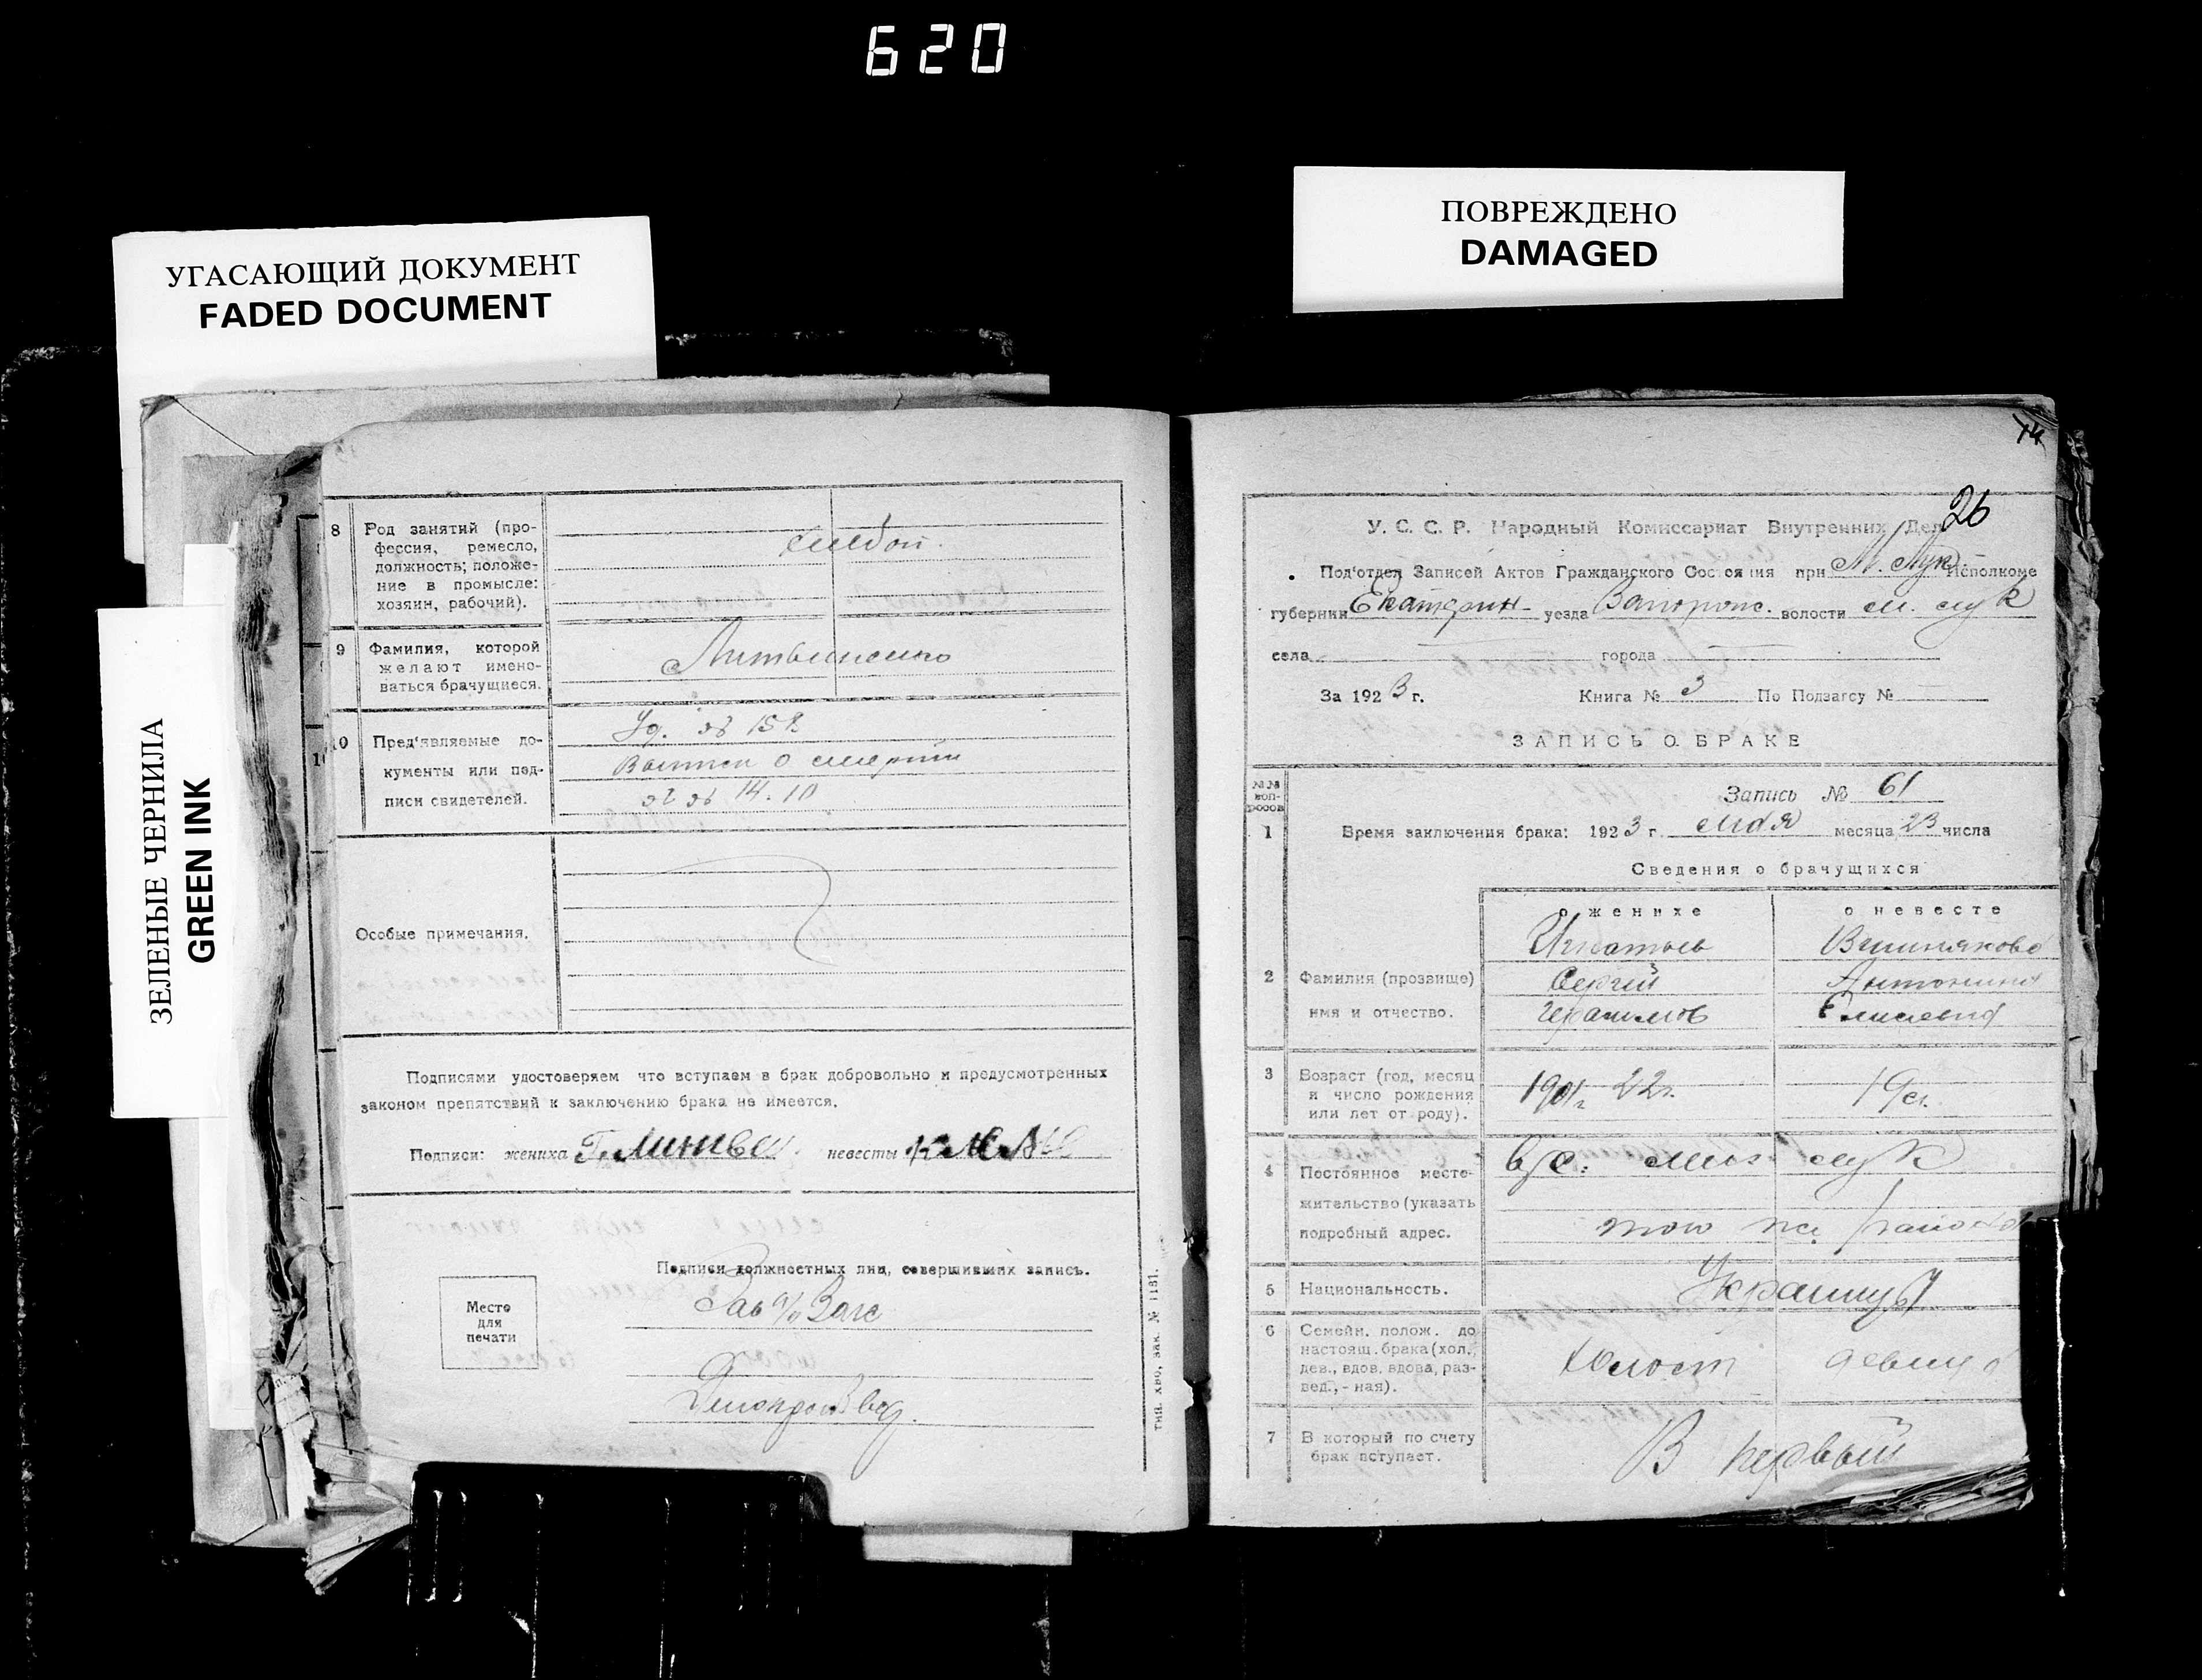 620
УГАСАЮЩИЙ ДОКУМЕНТ
FADED DOCUMENT
ПОВРЕЖДЕНО
DAMAGED
ЗЕЛЕНЫЕ ЧЕРНИЛА
GREEN INK
8 Род занятий (про-
фессия, ремесло,
должность; положе-
ние в промысле:
хозяин, рабочий).
9 Фамилия, которой
желают имено-
ваться брачущиеся.
Литвиненко
10 Пред'являемые до-
кументы или под-
писи свидетелей.
Уд. за 152
о смерти
за 14.10
Особые примечания.
Подписями удостоверяем что вступаем в брак добровольно и предусмотренных
законом препятствий к заключению брака не имеется.
Подписи: жениха Г. Литве невесты
Подписи должностных лиц, совершивших запись.
Место
для
печати
Зав п/о Загс
Делопроизвод.
тип. хво, зак. № 1181.
14
26
У. С. С. Р. Народный Комиссариат Внутренних Дел
Под'отдел Записей Актов Гражданского Состояния при М. Лук. Исполкоме
губернии Екатерин уезда Запорож. волости М. Лук
села города
За 1923 г. Книга № 3 По Подзагсу №
ЗАПИСЬ О БРАКЕ
№№ воп-росов
Запись № 61
1 Время заключения брака: 1923 г. мая месяца 23 числа
Сведения о брачущихся
о женихе о невесте
2 Фамилия (прозвище)
имя и отчество.
Игнатьев Вишнякова
Сергей Антонина
Герасимов Елисевна
3 Возраст (год, месяц
и число рождения
или лет от роду).
1901 г. 22 г. 19 л.
4 Постоянное место-
жительство (указать
подробный адрес.
в/с. Мих Лук
того же района
5 Национальность. Украинцы
6 Семейн. полож. до
настоящ. брака (хол.,
дев., вдов. вдова, раз-
вед., - ная).
Холост девица
7 В который по счету
брак вступает.
В первый